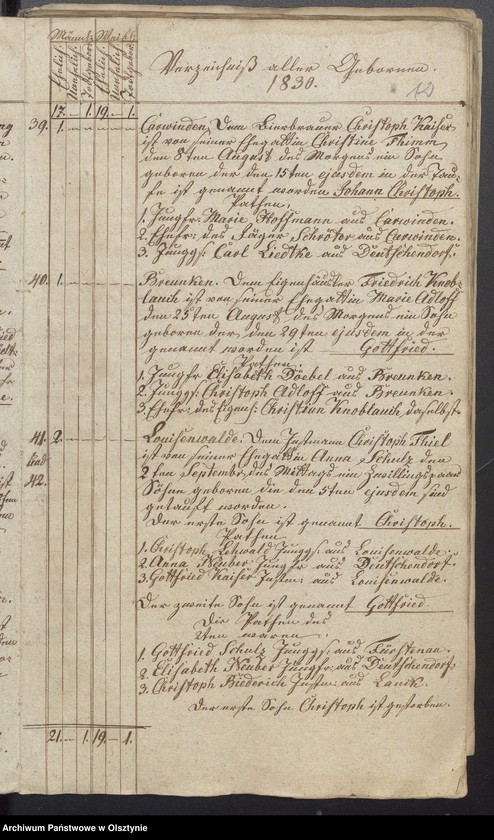 Männl: Weibl:
Ehelic: Unehelic: Todtgebor: Ehelic: Unehelic: Todtgebor:
Verzeichniß aller Gebornen.
1830.
17. — 1. 19. — 1.
39. 1. Carwinden. Dem Bierbrauer Christoph Kaiser
ist von seiner Ehegattin Christine Thimm
den 8ten August des Morgens ein Sohn
geboren der den 15ten ejusdem in der Tau-
fe ist genannt worden Johann Christoph.
Pathen.
1. Jungfr: Marie Hoffmann aus Carwinden.
2. Ehefr: des Jäger Schröter aus Carwinden.
3. Junggs: Carl Liedtke aus Deutschendorf.
40. 1. Breunken. Dem Eigenkäthner Friedrich Knob-
lauch ist von seiner Ehegattin Marie Adloff
den 25ten August des Morgens ein Sohn
geboren der, den 29ten ejusdem in der
genannt worden ist Gottfried.
Pathen.
1. Jungfr Elisabeth Doebel aus Breunken.
2. Junggs: Christoph Adloff aus Breunken.
3. Ehefr: des Eigenk: Christian Knoblauch daselbst
41. 2. Louisenwalde. Dem Instmann Christoph Thiel
und ist von seiner Ehegattin Anna Schulz den
42. 2ten September des Mittags ein Zwillingspaar
Söhne geboren die den 5ten ejusdem sind
getauft worden.
Der erste Sohn ist genannt Christoph.
Pathen
1. Christoph Lehwald Junggs: aus Louisenwalde.
2. Anna Neuber Jungfr aus Deutschendorf.
3. Gottfried Kaiser Instm: aus Louisenwalde.
Der zweite Sohn ist genannt Gottfried.
Die Pathen des
2ten waren.
1. Gottfried Schulz Junggs: aus Fürstenau.
2. Elisabeth Neuber Jungfr: aus Deutschendorf
3. Christoph Biederich Instm: aus Lauck.
Der erste Sohn Christoph ist gestorben.
21. — 1. 19. — 1.
Archiwum Państwowe w Olsztynie